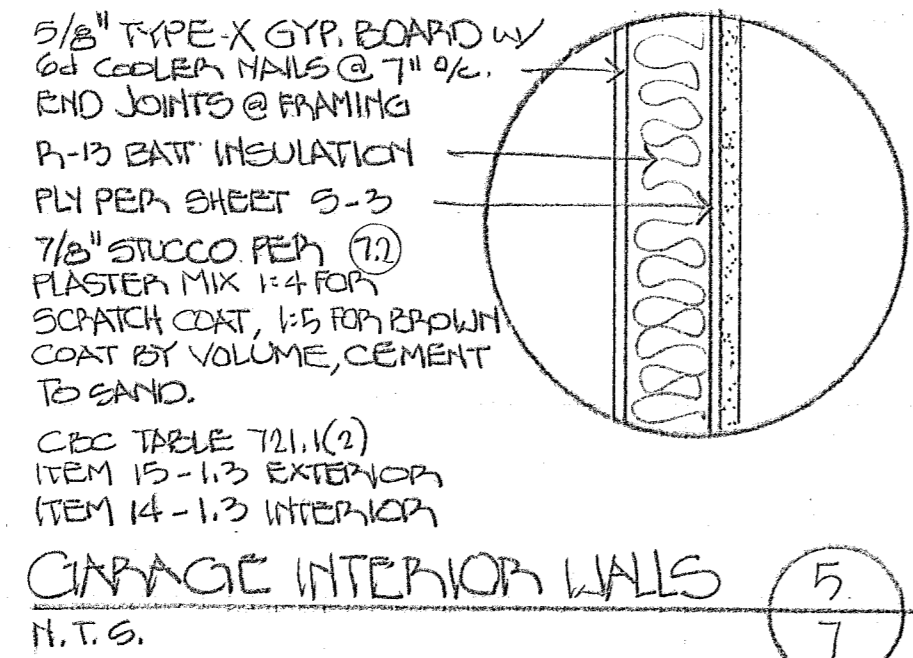 5/8" TYPE-X GYP. BOARD W/
6d COOLER NAILS @ 7" O/C.
END JOINTS @ FRAMING
R-13 BATT INSULATION
PLY PER SHEET S-3
7/8" STUCCO PER 7.2
PLASTER MIX 1:4 FOR
SCRATCH COAT, 1:5 FOR BROWN
COAT BY VOLUME, CEMENT
TO SAND.
CBC TABLE 721.1(2)
ITEM 15-1.3 EXTERIOR
ITEM 14-1.3 INTERIOR
GARAGE INTERIOR WALLS
5
N.T.S.
7